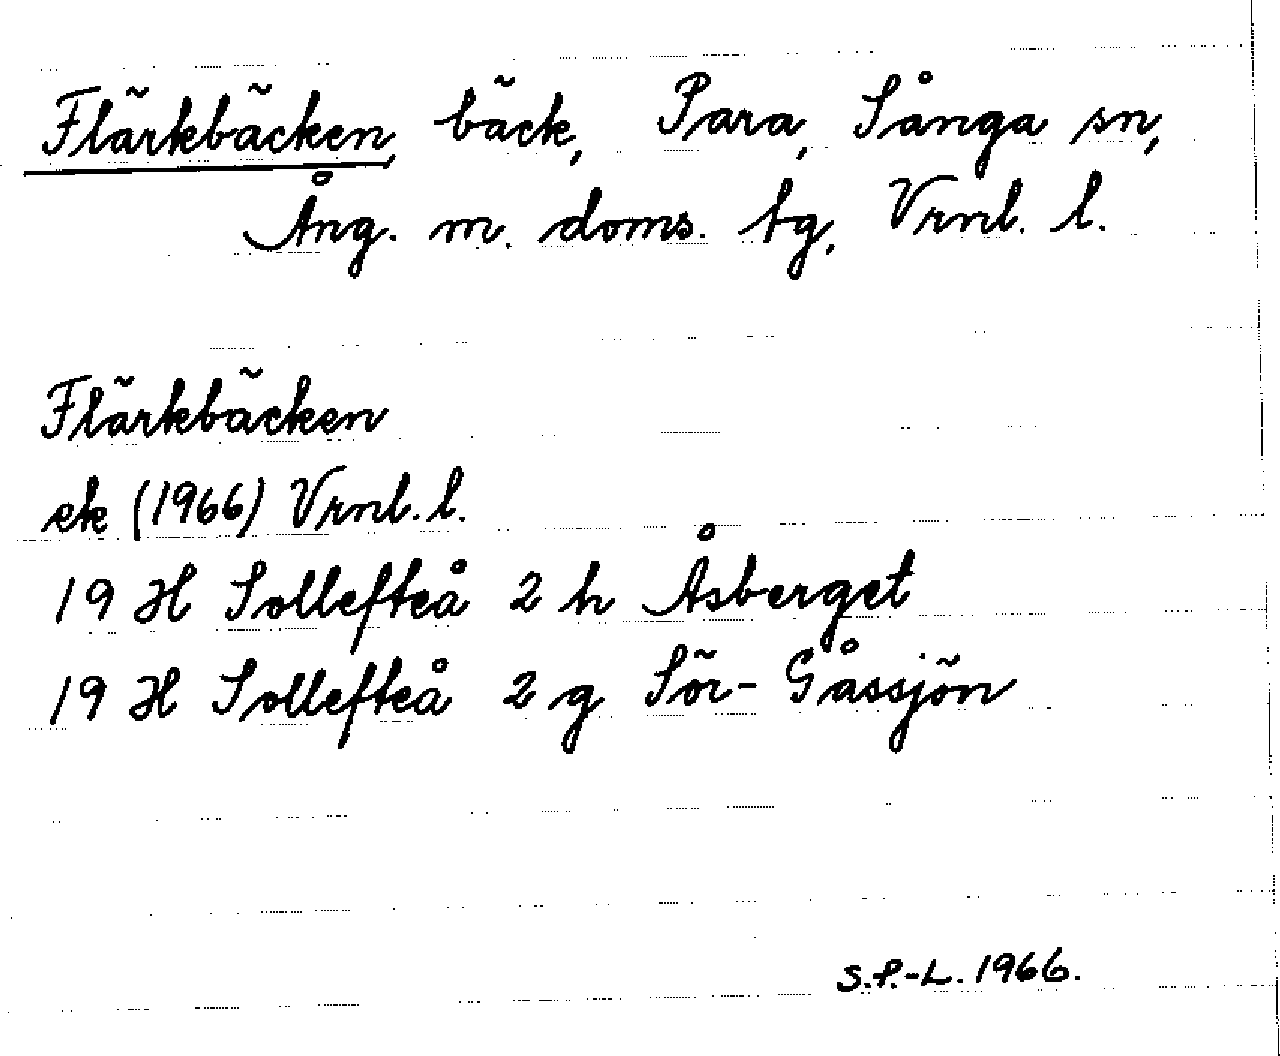 Flärkbäcken, bäck, Para, Sånga sn,
Ång. m. doms. tg, Vrnl. l.
Flärkbäcken
ek (1966) Vrnl. l.
19 H Sollefteå 2 h Åsberget
19 H Sollefteå 2 g Sör-Gåssjön
S.P.-L. 1966.